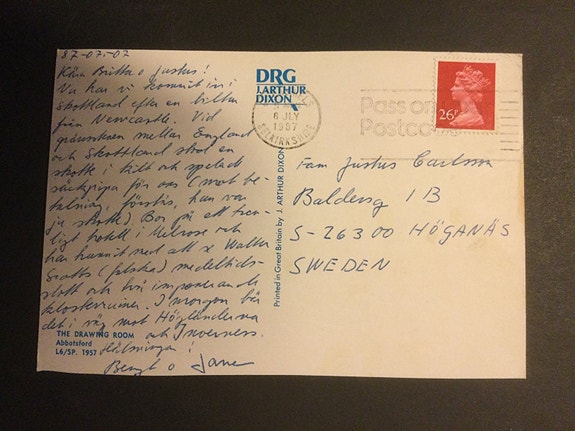 87-07-02
Kära Britta o Justus!
Nu har vi kommit in i
Skottland efter en biltur
från Newcastle. Vid
gränsen mellan England
och Skottland stod en
skotte i kilt och spelade
säckpipa för oss (mot be-
talning, förstås, han var
ju skotte). Bor på ett trev-
ligt hotell i Melrose och
har hunnit med att se Walter
Scotts (falska) medeltids-
slott och två imponerande
klosterruiner. I morgon bär
det i väg mot Högländerna
och Inverness.
Hälsningar!
Bengt o
THE DRAWING ROOM
Abbotsford
L6/SP. 1957
DRG
J.ARTHUR
DIXON
Printed in Great Britain by J. ARTHUR DIXON
6 JLY
1987
SELKIRKSHIRE
Pass on
Postco
26P
Fam Justus Carlsson
Baldersg 1B
S-26300 HÖGANÄS
SWEDEN